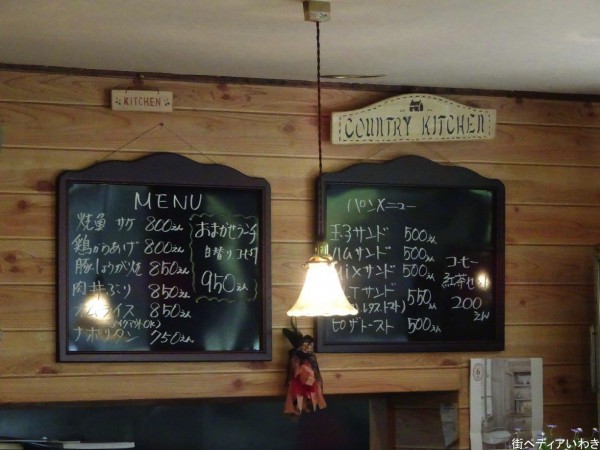 KITCHEN
COUNTRY KITCHEN
MENU
焼魚 サケ 800えん
鶏からあげ 800えん
豚しょうが焼 850えん
肉丼ぶり 850えん
オムライス 850えん
ナポリタン 750えん
おまかせランチ
日替り
950えん
パンメニュー
玉子サンド 500えん
ハムサンド 500えん
Mixサンド 500えん
サンド 550えん
(レタストマト)
ピザトースト 500えん
コーヒー
紅茶セット
200えん
街ペディアいわき